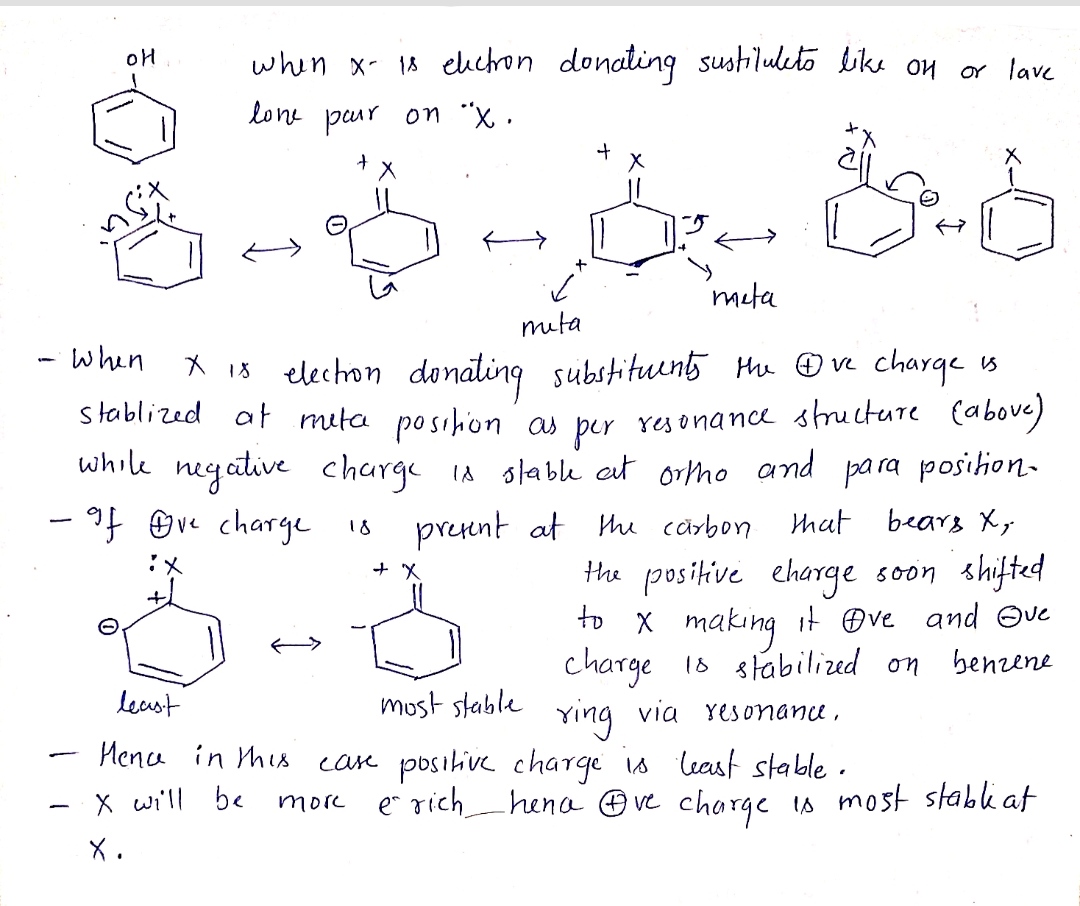 OH
when X- is elechron donating sustilulets like OH or lave
lone pair on ¨X.
:X
+
-
+ X
⊖
+ X
+
-
-
+
+X
⊖
X
meta
muta
- When X is electron donating substituents the ⊕ve charge is
stablized at meta position as per resonance structure (above)
while negative charge is stable at ortho and para position.
- If ⊕ve charge is present at the carbon that bears X,
:X
+
⊖
+ X
-
the positive charge soon shifted
to X making it ⊕ve and ⊖ve
charge is stabilized on benzene
least
most stable
ring via resonance.
- Hence in this case positive charge is least stable.
- X will be more e⁻ rich hence ⊕ve charge is most stable at
X.